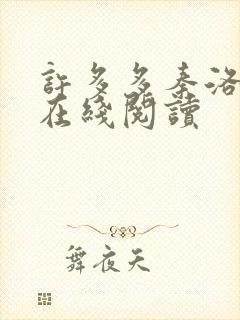 許多多秦洛
在綫閱讀
舞夜天